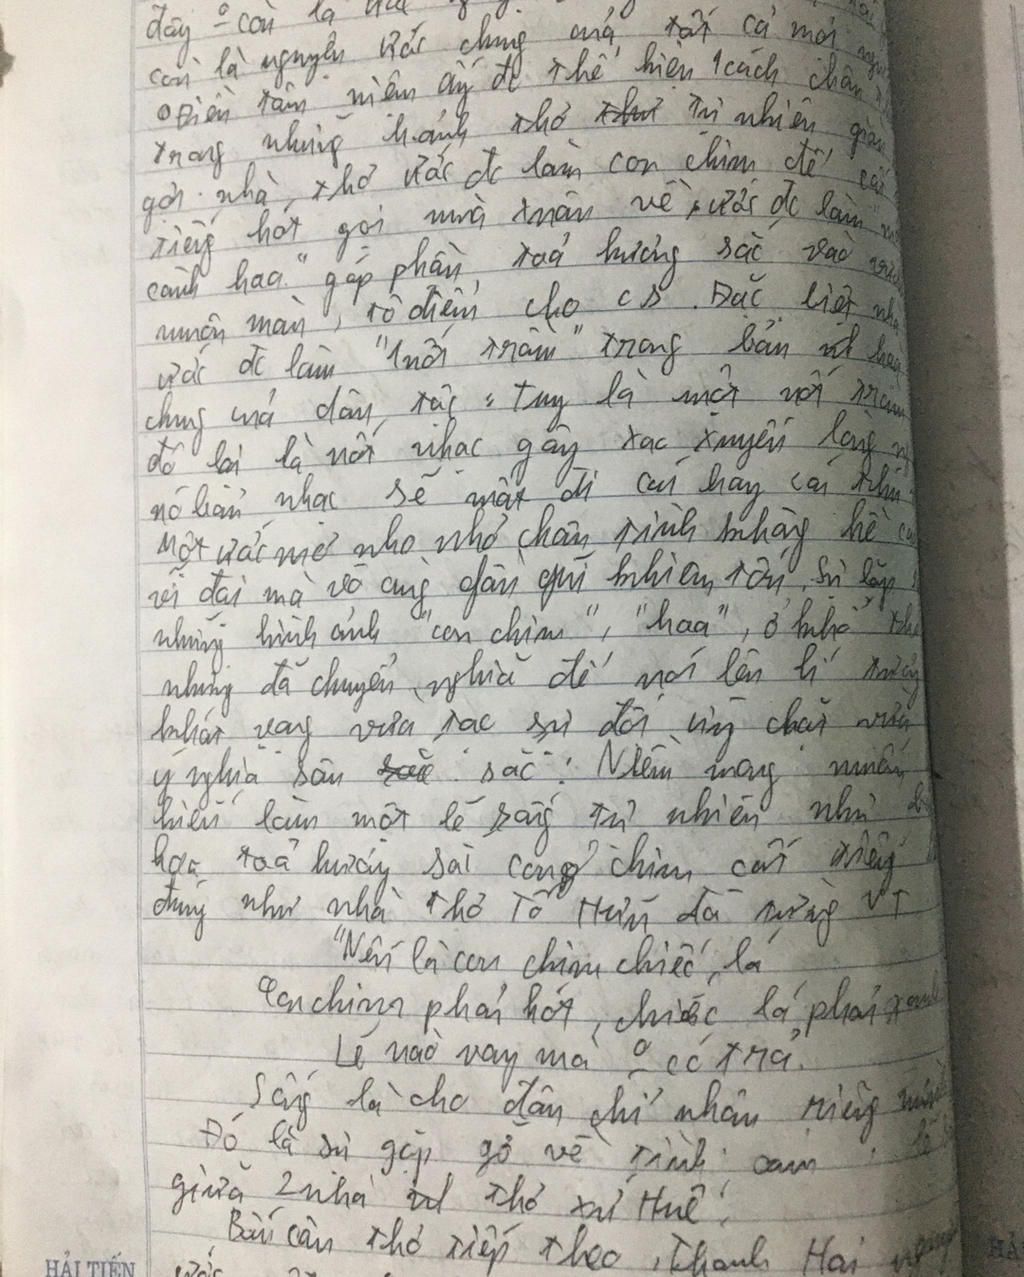 đây º còn là
còn là nguyên ước chung cuả tất cả mọi
º Điều tâm niệm ấy đc thể hiện 1 cách chân
trong những hảnh thơ tự nhiên giản
gợi nhà, thơ ước đc làm con chim để cất
tiếng hót gọi muà xuân về, ước đc làm
cành hoa" góp phần toả hương sắc vào
muôn màn, tô điểm cho cs. Đặc biệt nhà
ước đc làm "1 nốt trầm" trong bản hoà
chung cuả dân tộc. Tuy là một nốt trầm
đó lại là nốt nhạc gây xao xuyến lòng
nó bản nhạc sẽ mất đi cái hay cái thú
Một ước mơ nho nhỏ chân tình không hề
vĩ đại mà vô cùng đán quí khiêm tốn. Sự lặp
những hình ảnh "con chim", "hoa", ở khổ thơ
nhưng đã chuyển nghĩa để nói lên lí tưởng
khát vọng vừa tạo sự đối ứng chặt vừa
ý nghĩa sâu sắc: Niềm mong muốn
hiến làm một lẽ sống tự nhiên như
hoa toả hương sắc cong chim cất tiếng
đúng như nhà thơ Tố Hữu đã từng VT
"Nếu là con chim chiếc lá
Con chim phải hót, chiếc lá phải xanh
Lẽ nào vay mà º có trả"
Sống là cho đâu chỉ nhận riêng mình
Đó là sự gặp gỡ về tình cảm lẽ
giữa 2 nhà thơ xứ Huế.
Bốn câu thơ tiếp theo, Thanh Hải
ước
HẢI TIẾN